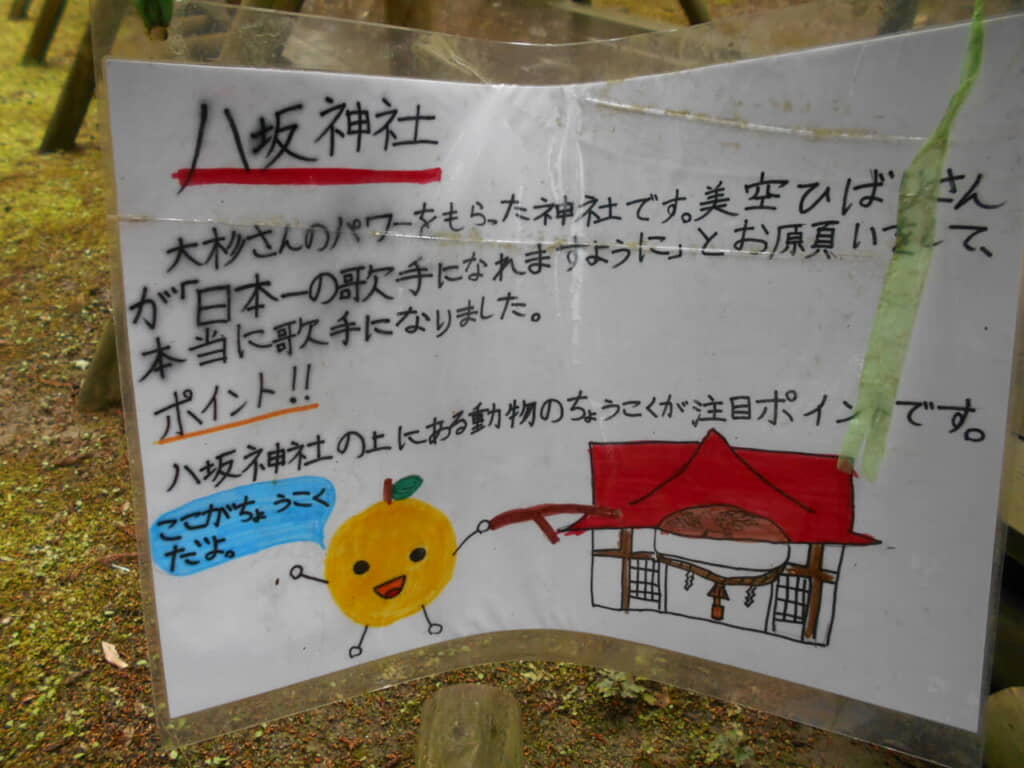 八坂神社
大杉さんのパワーをもらった神社です。美空ひばりさん
が「日本一の歌手になれますように」とお願いをして、
本当に歌手になりました。
ポイント!!
八坂神社の上にある動物のちょうこくが注目ポイントです。
ここがちょうこく
だよ。